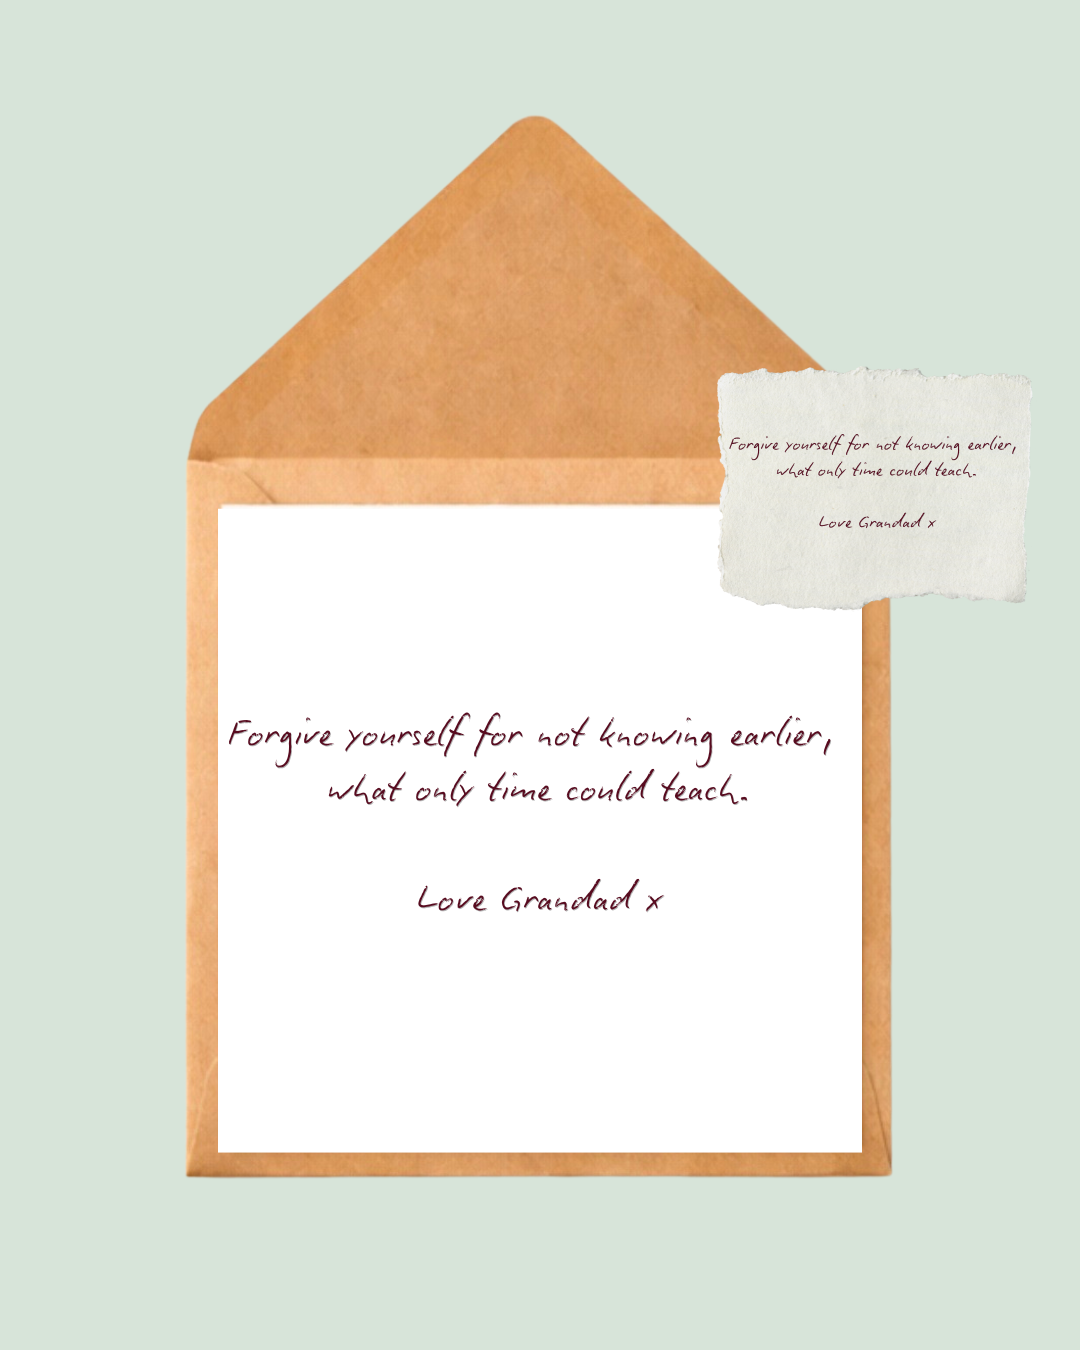 Forgive yourself for not knowing earlier,
what only time could teach.
Love Grandad x
Forgive yourself for not knowing earlier,
what only time could teach.
Love Grandad x